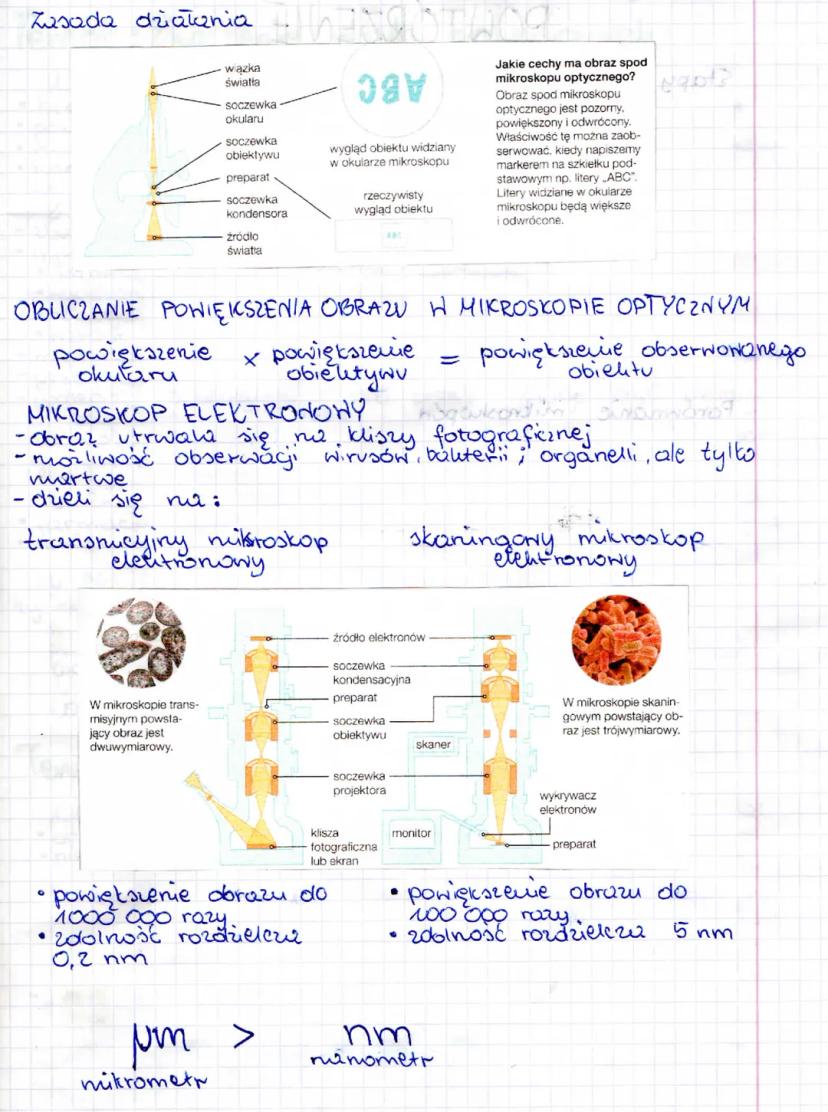 Zasada działania
wiązka
światła
soczewka
okularu
soczewka
obiektywu
preparat
soczewka
kondensora
źródło
światła
ABC
wygląd obiektu widziany
w okularze mikroskopu
rzeczywisty
wygląd obiektu
ABC
Jakie cechy ma obraz spod
mikroskopu optycznego?
Obraz spod mikroskopu
optycznego jest pozorny,
powiększony i odwrócony.
Właściwość tę można zaob-
serwować, kiedy napiszemy
markerem na szkiełku pod-
stawowym np. litery „ABC”.
Litery widziane w okularze
mikroskopu będą większe
i odwrócone.
OBLICZANIE POWIĘKSZENIA OBRAZU W MIKROSKOPIE OPTYCZNYM
powiększenie x powiększenie = powiększenie obserwowanego
okularu obiektywu obiektu
MIKROSKOP ELEKTRONOWY
- obraz utrwala się na kliszy fotograficznej
- możliwość obserwacji wirusów, bakterii i organelli, ale tylko
martwe
- dzieli się na:
transmicyjny mikroskop skaningowy mikroskop
elektronowy elektronowy
W mikroskopie trans-
misyjnym powsta-
jący obraz jest
dwuwymiarowy.
źródło elektronów
soczewka
kondensacyjna
preparat
soczewka
obiektywu
skaner
soczewka
projektora
klisza
fotograficzna
lub ekran
monitor
wykrywacz
elektronów
preparat
W mikroskopie skanin-
gowym powstający ob-
raz jest trójwymiarowy.
• powiększenie obrazu do
1000 000 razy
• zdolność rozdzielcza
0,2 nm
• powiększenie obrazu do
100 000 razy
• zdolność rozdzielcza 5 nm
μm > nm
mikrometr nanometr